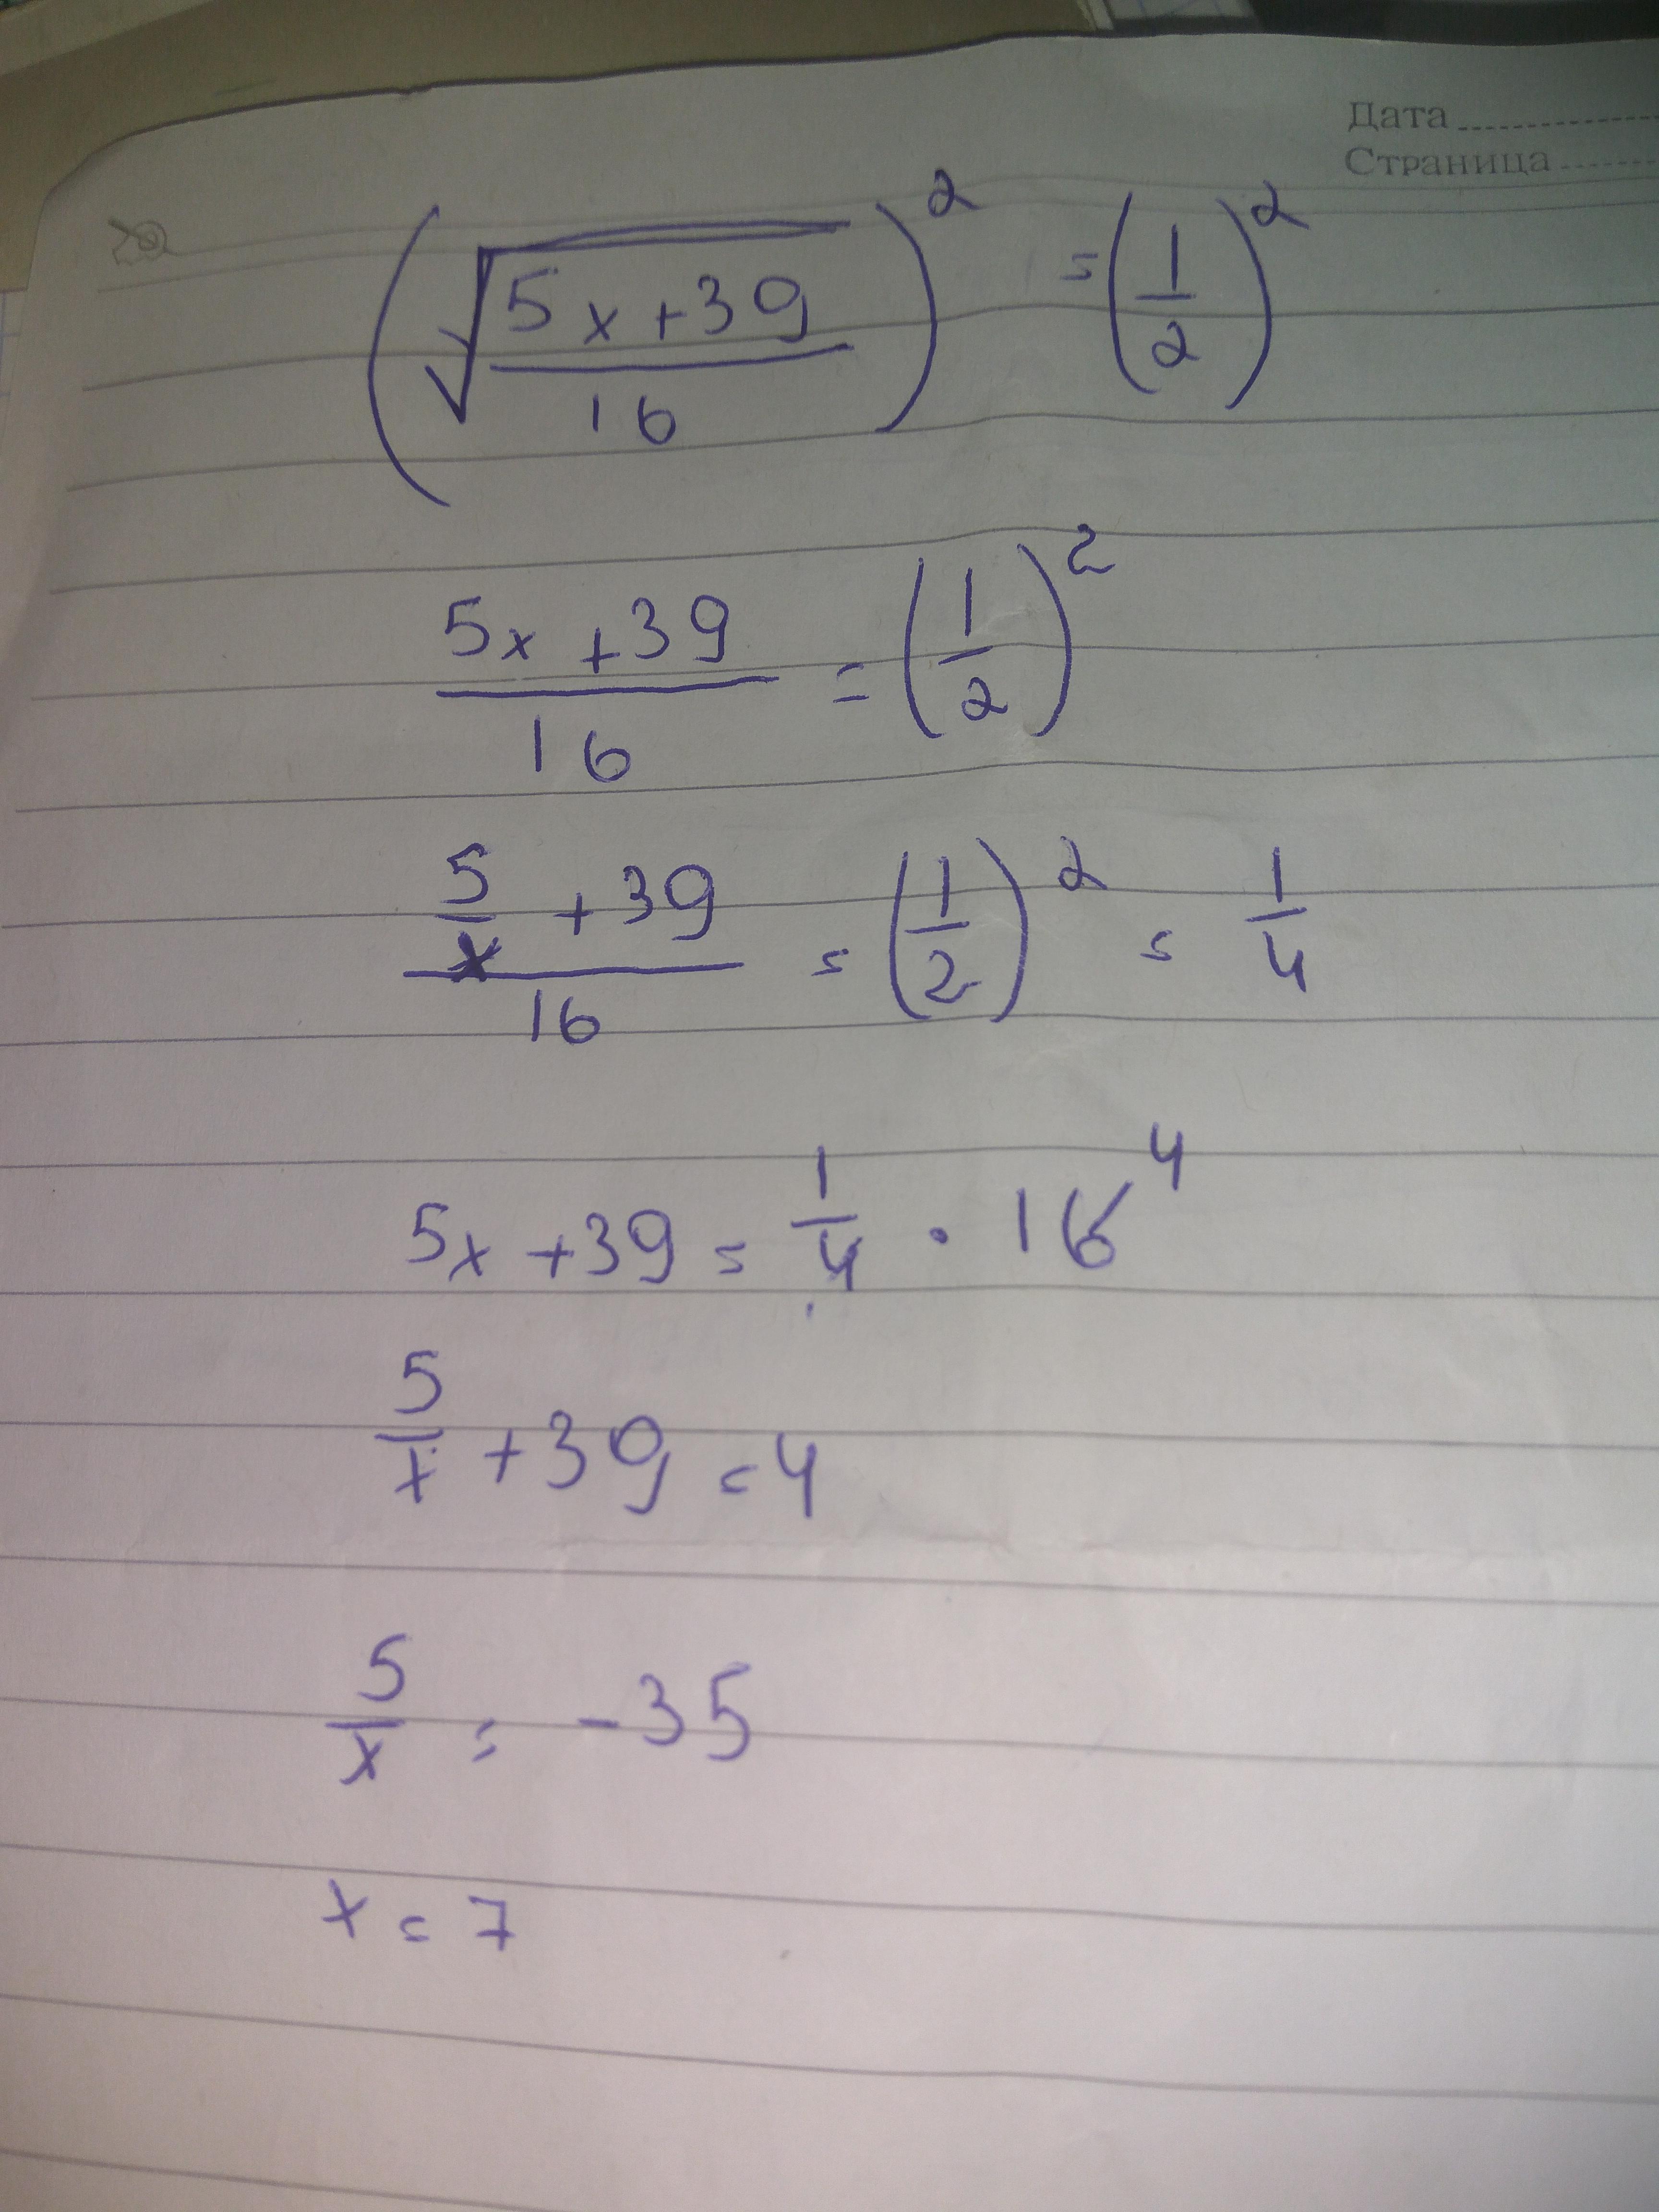 Дата
Страница
(√(5x+39)/16)² = (1/2)²
(5x+39)/16 = (1/2)²
(5/x+39)/16 = (1/2)² = 1/4
5x+39 = 1/4 · 16⁴
5/x+39=4
5/x = -35
x = 7